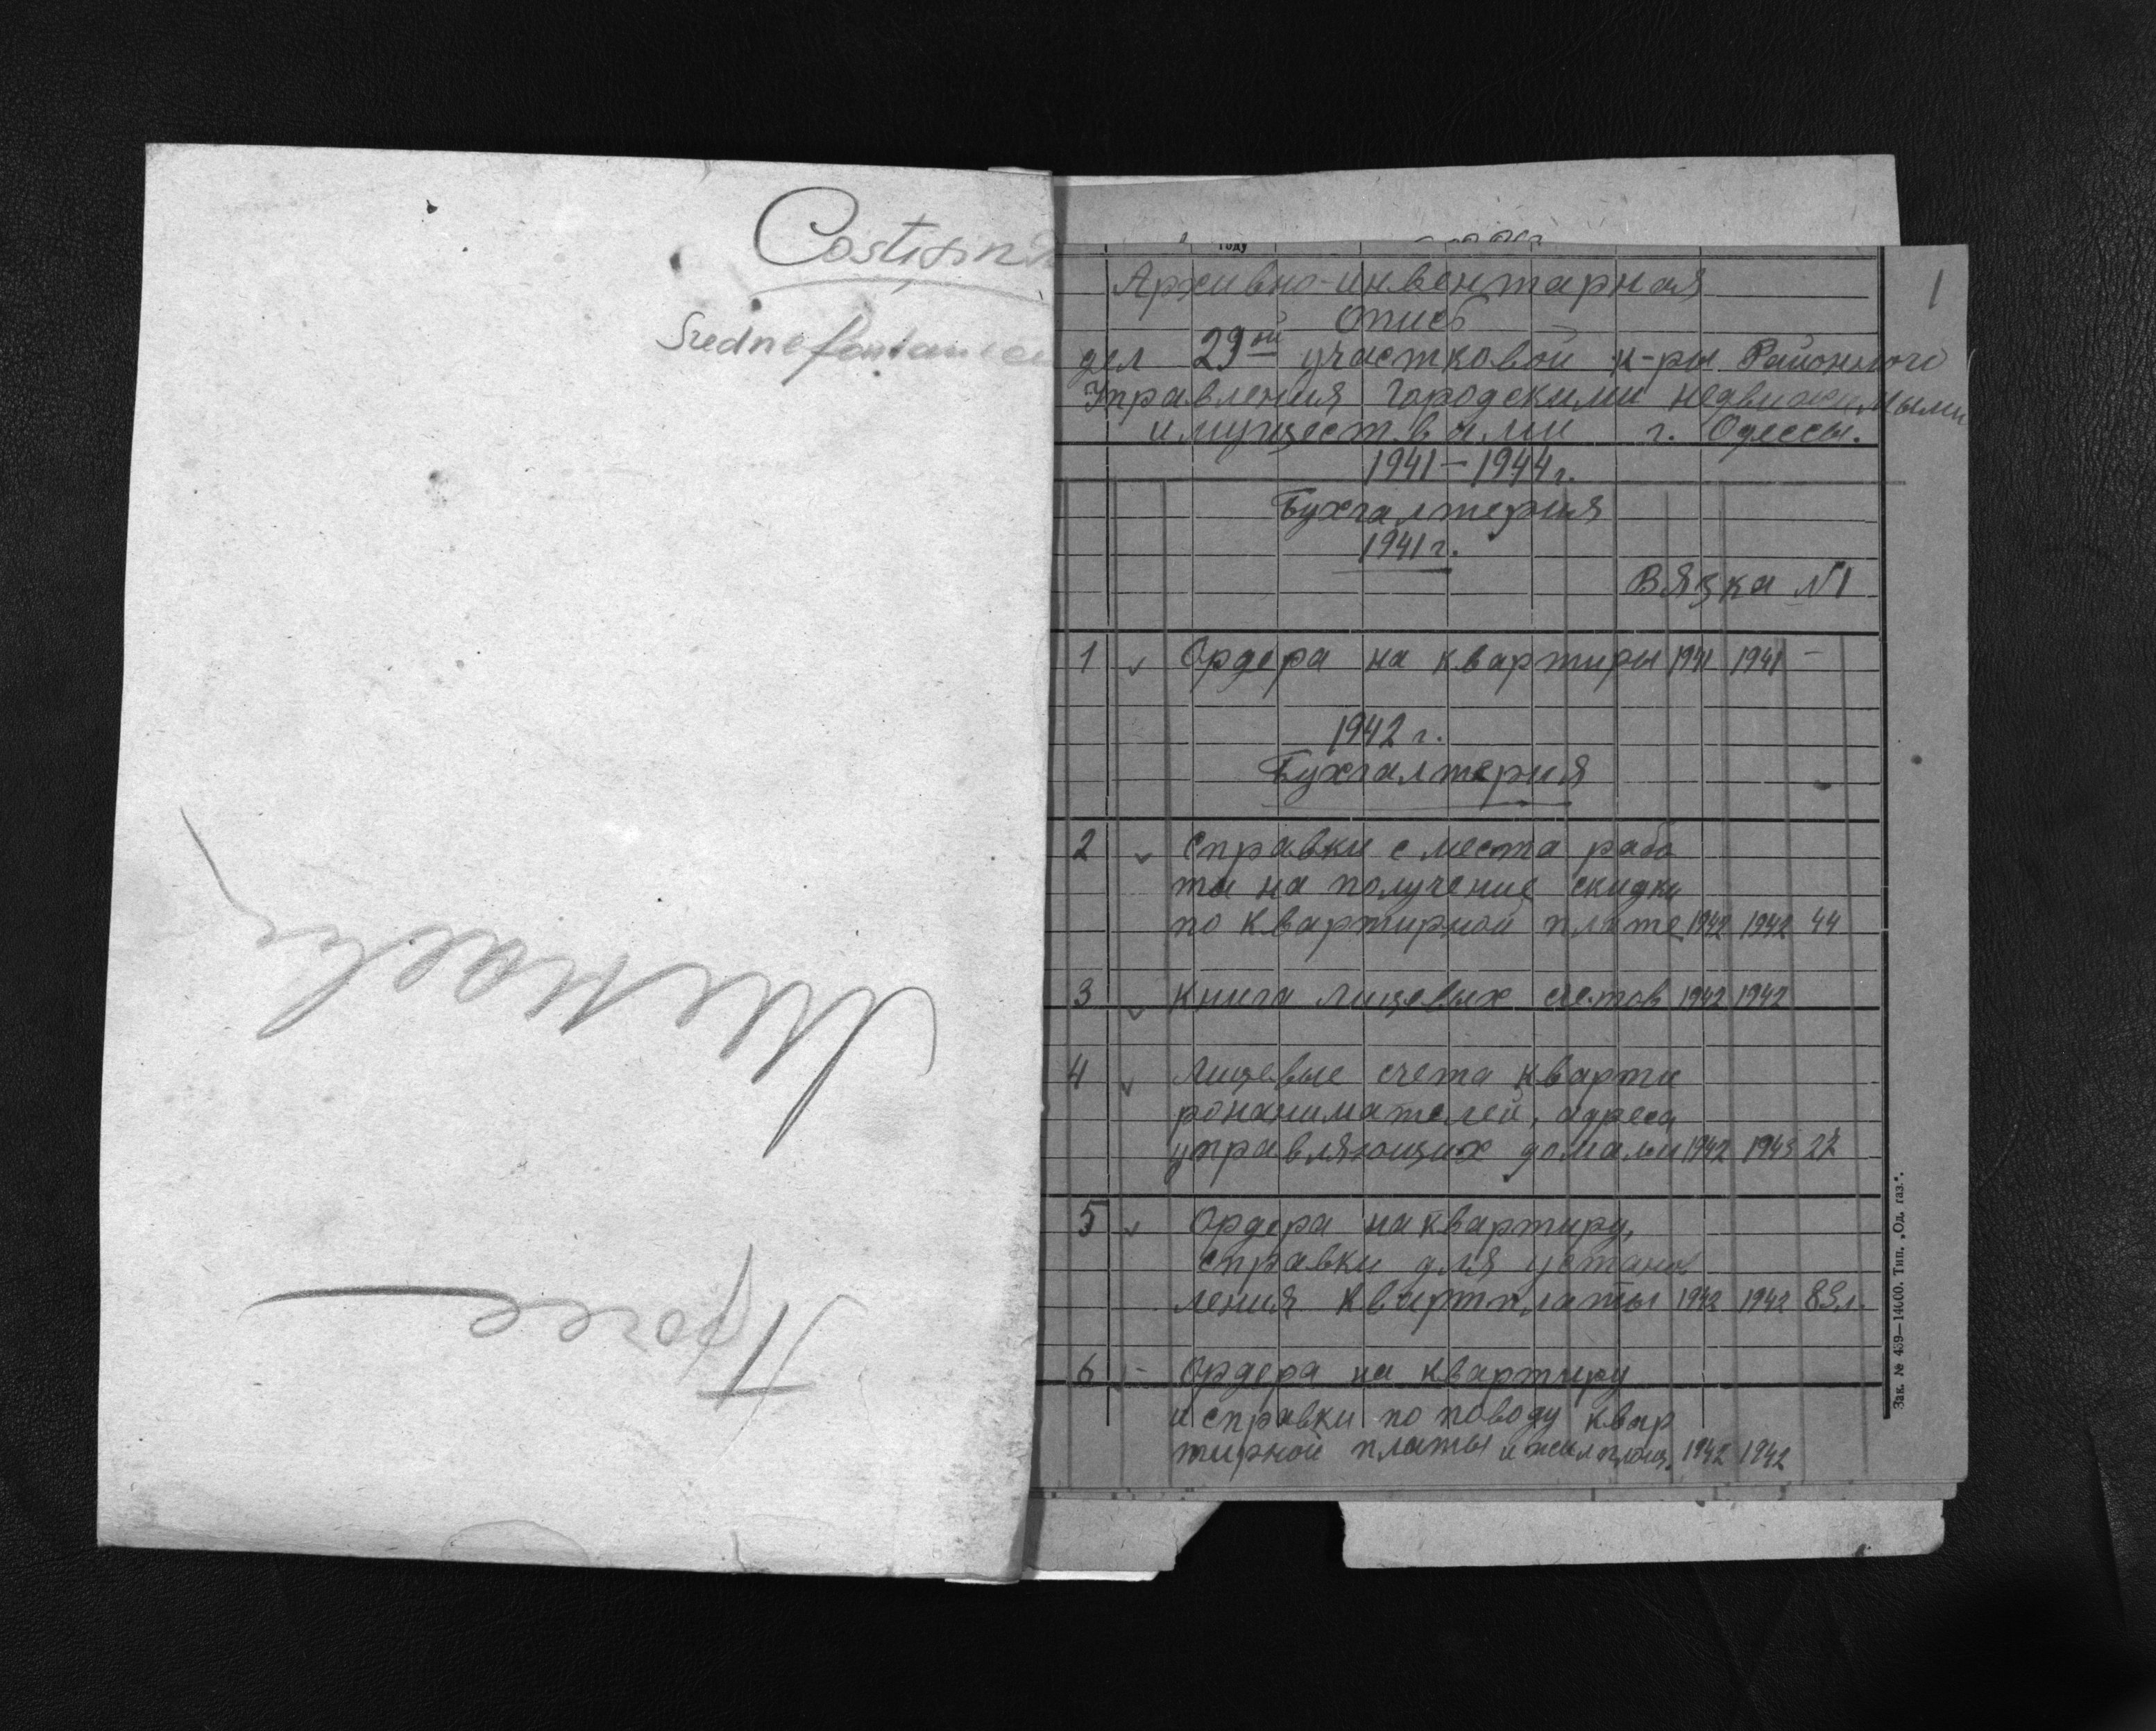 году
Архивно-инвентарная
опись
дел 29ой участковой к-ры Районного
Управления городскими недвижимыми
имуществами г. Одессы.
1941-1944г.
Бухгалтерия
1941г.
Вязка N1
1 Ордера на квартиры 1941 1941 -
1942 г.
Бухгалтерия
2 Справки с места рабо
ты на получение скидки
по квартирной плате 1942 1942 44
3 Книга лицевых счетов 1942 1942
4 Лицевые счета кварти
ронанимателей, адреса
управляющих домами 1942 1943 27
5 Ордера на квартиру,
справки для установ
ления квартплаты 1942 1942 83л.
6 - Ордера на квартиру
и справки по поводу квар
тирной платы и жилплощ. 1942 1942
1
Зак. № 439—14000. Тип. „Од. газ.".